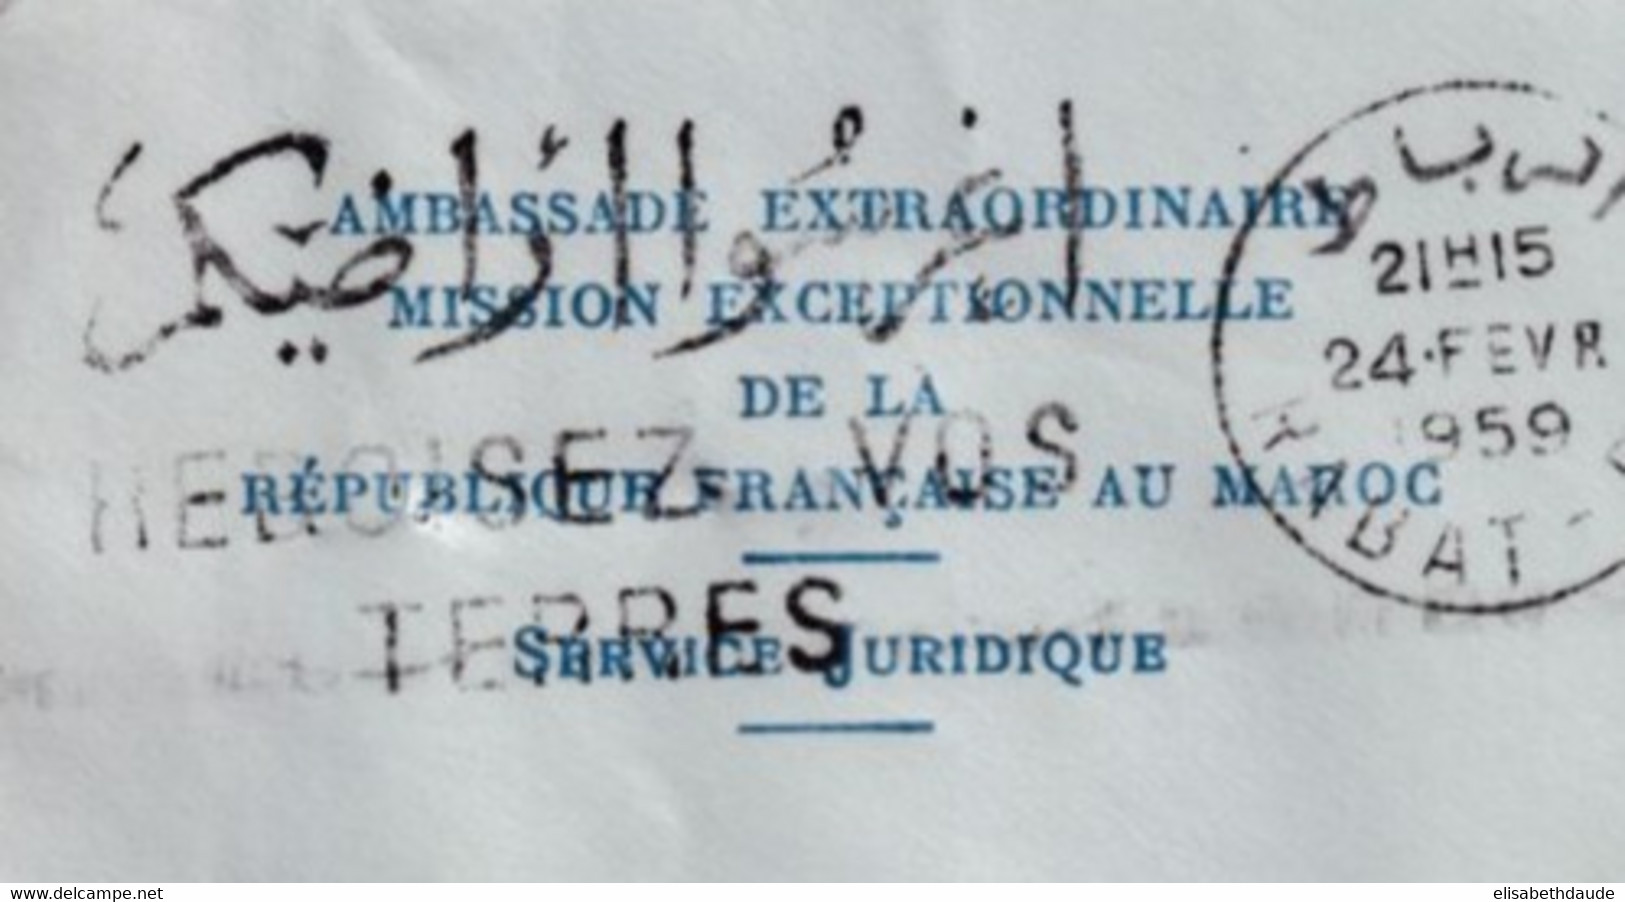 اغرسوا أراضيكم
AMBASSADE EXTRAORDINAIRE
MISSION EXCEPTIONNELLE
DE LA
RÉPUBLIQUE FRANÇAISE AU MAROC
SERVICE JURIDIQUE
VOS
TERRES
الرباط
21H15
24·FEVR
1959
RABAT
www.delcampe.net
elisabethdaude